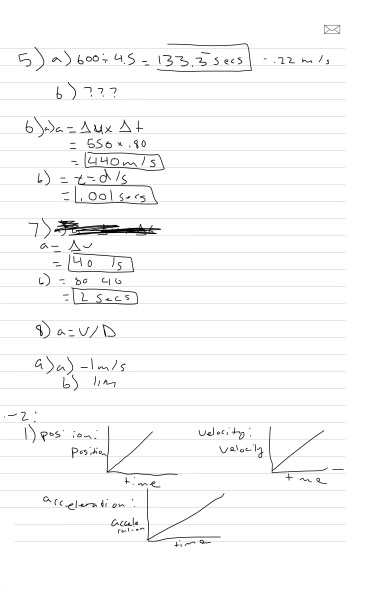 5) a) 600 ÷ 4.5 = 133.3 secs - .22 m/s
b) ???
6) a) a = Δu x Δt
= 550 x .80
= 440 m/s
b) = t = d/s
= .001 secs
7)
a = Δv
= 40 /s
b) = 80 40
= 2 secs
8) a = V/D
9) a) -1 m/s
b) 11m
-2:
1) position: velocity:
position velocity
time time
acceleration:
accele
ration
time